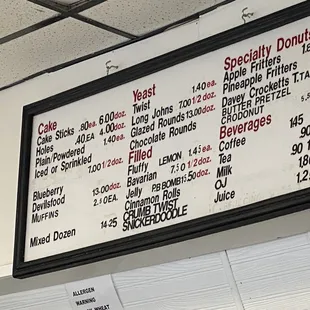 Cake
Cake Sticks .80ea. 6.00doz.
Holes .40EA 4.00doz.
Plain/Powdered 1.40ea.
Iced or Sprinkled 7.00 1/2 doz.
Blueberry 13.00doz.
Devilsfood
MUFFINS
Mixed Dozen 14.25
Yeast
Twist 1.40ea.
Long Johns 7.00 1/2 doz.
Glazed Rounds 13.00doz.
Chocolate Rounds
Filled
Fluffy LEMON 1.45ea.
Bavarian 1/2 doz.
Jelly P.B BOMB 13.50doz.
Cinnamon Rolls
CRUMB TWIST
SNICKERDOODLE
Specialty Donuts
Apple Fritters
Pineapple Fritters
Davey Crocketts
BUTTER PRETZEL
CRODONUT
Beverages
Coffee
Tea
Milk
OJ
Juice
ALLERGEN
WARNING
WHEAT